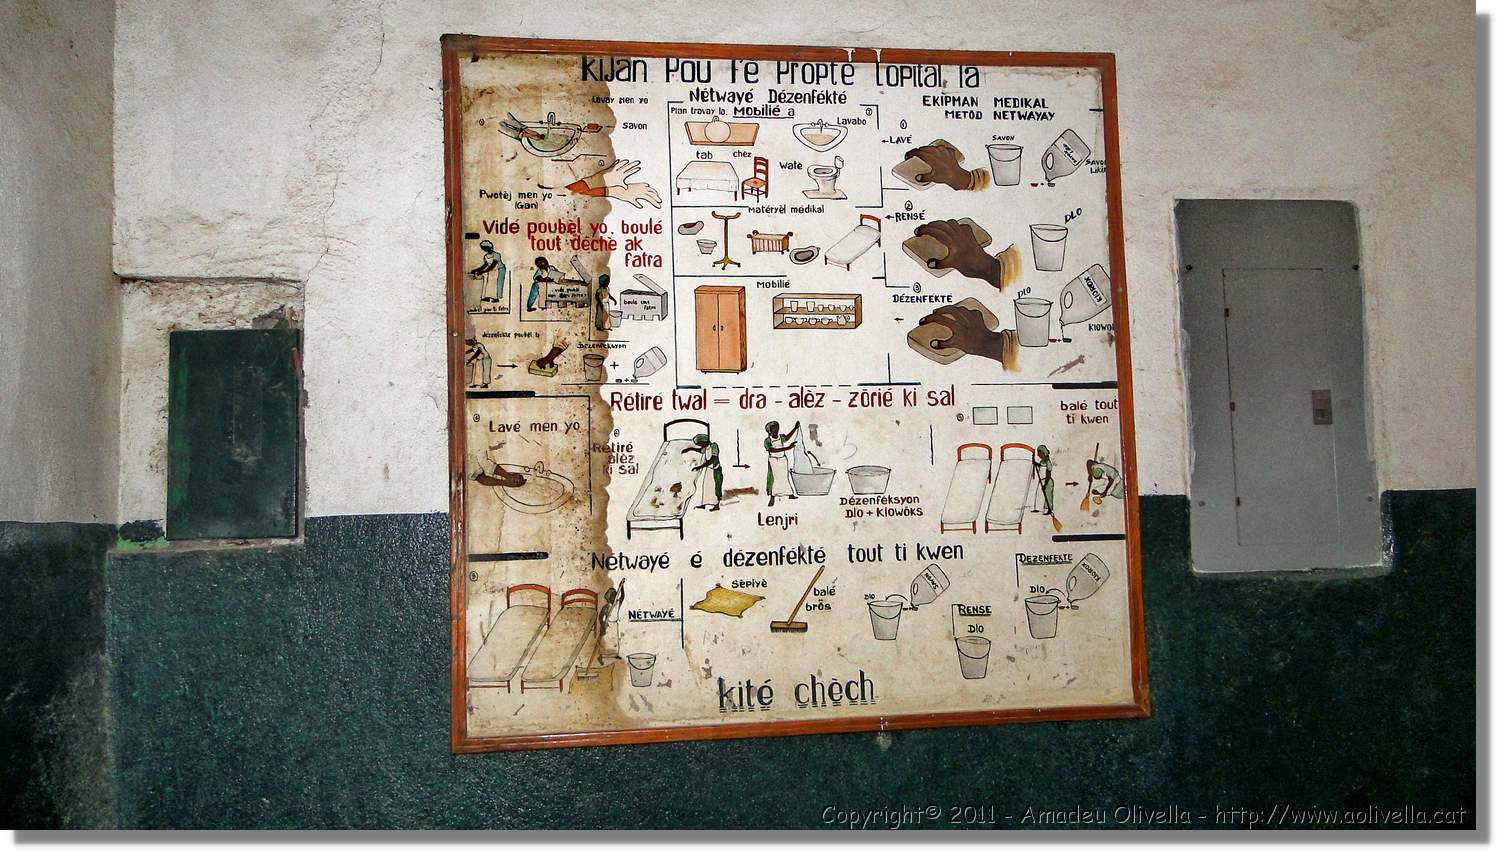 Kijan Pou Fè Propte Lopital la
Lavay men yo
savon
Pwotèj men yo
(Gan)
Vidé poubèl yo, boulé
tout dèchè ak
fatra
dézenfèkte poubèl la
Dézenfeksyon
Nétwayé Dézenfékté
Plan travay la, Mobilié a
Lavabo
tab
chèz
Waté
Matéryèl médikal
Mobilié
EKIPMAN MEDIKAL
METÒD NETWAYAY
LAVÉ
SAVON
SAVON
Likid
RENSÉ
DLO
DÉZENFEKTÉ
DLO
KLOROX
KLOWOX
Rétiré twal = dra - alèz - zòrié ki sal
Lavé men yo
Rétiré
alèz
ki sal
Lenjri
Dézenféksyon
Dlo + Klowòks
balé tout
ti kwen
Nétwayé é dézenfékté tout ti kwen
NÉTWAYÉ
Sèpiyè
balé
bròs
DLO
Savon
RENSE
DLO
DEZENFEKTE
DLO
KLOROX
kité chèch
Copyright© 2011 - Amadeu Olivella - http://www.aolivella.cat